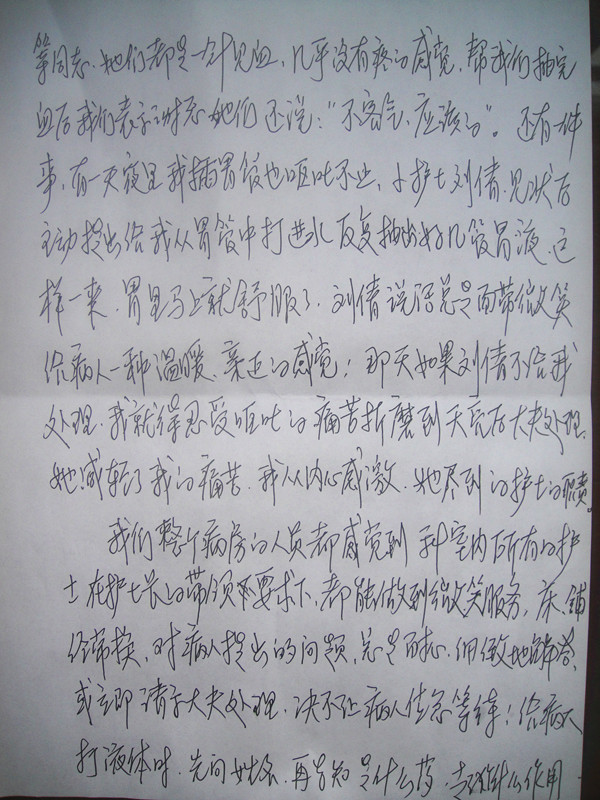 等同志。她们都是一针见血，几乎没有疼的感觉，帮我们抽完
血后我们表示谢意她们还说：“不客气、应该的”。还有一件
事，有一天夜里我插胃管也呕吐不止，小护士刘倩见状后
主动提出给我从胃管中打进水反复抽出好几管胃液，这
样一来，胃里马上就舒服了，刘倩说话总是面带微笑
给病人一种温暖、亲近的感觉；那天如果刘倩不给我
处理，我就得忍受呕吐的痛苦折磨到天亮后大夫处理，
她减轻了我的痛苦，我从内心感激，她尽到的护士的职责。
我们整个病房的人员都感觉到科室内所有的护
士在护士长的带领和要求下，都能做到微笑服务，床铺
经常换，对病人提出的问题，总是耐心、细致地解答，
或立即请示大夫处理，决不让病人焦急等待；给病人
打液体时，先问姓名，再告知是什么药，去到什么作用